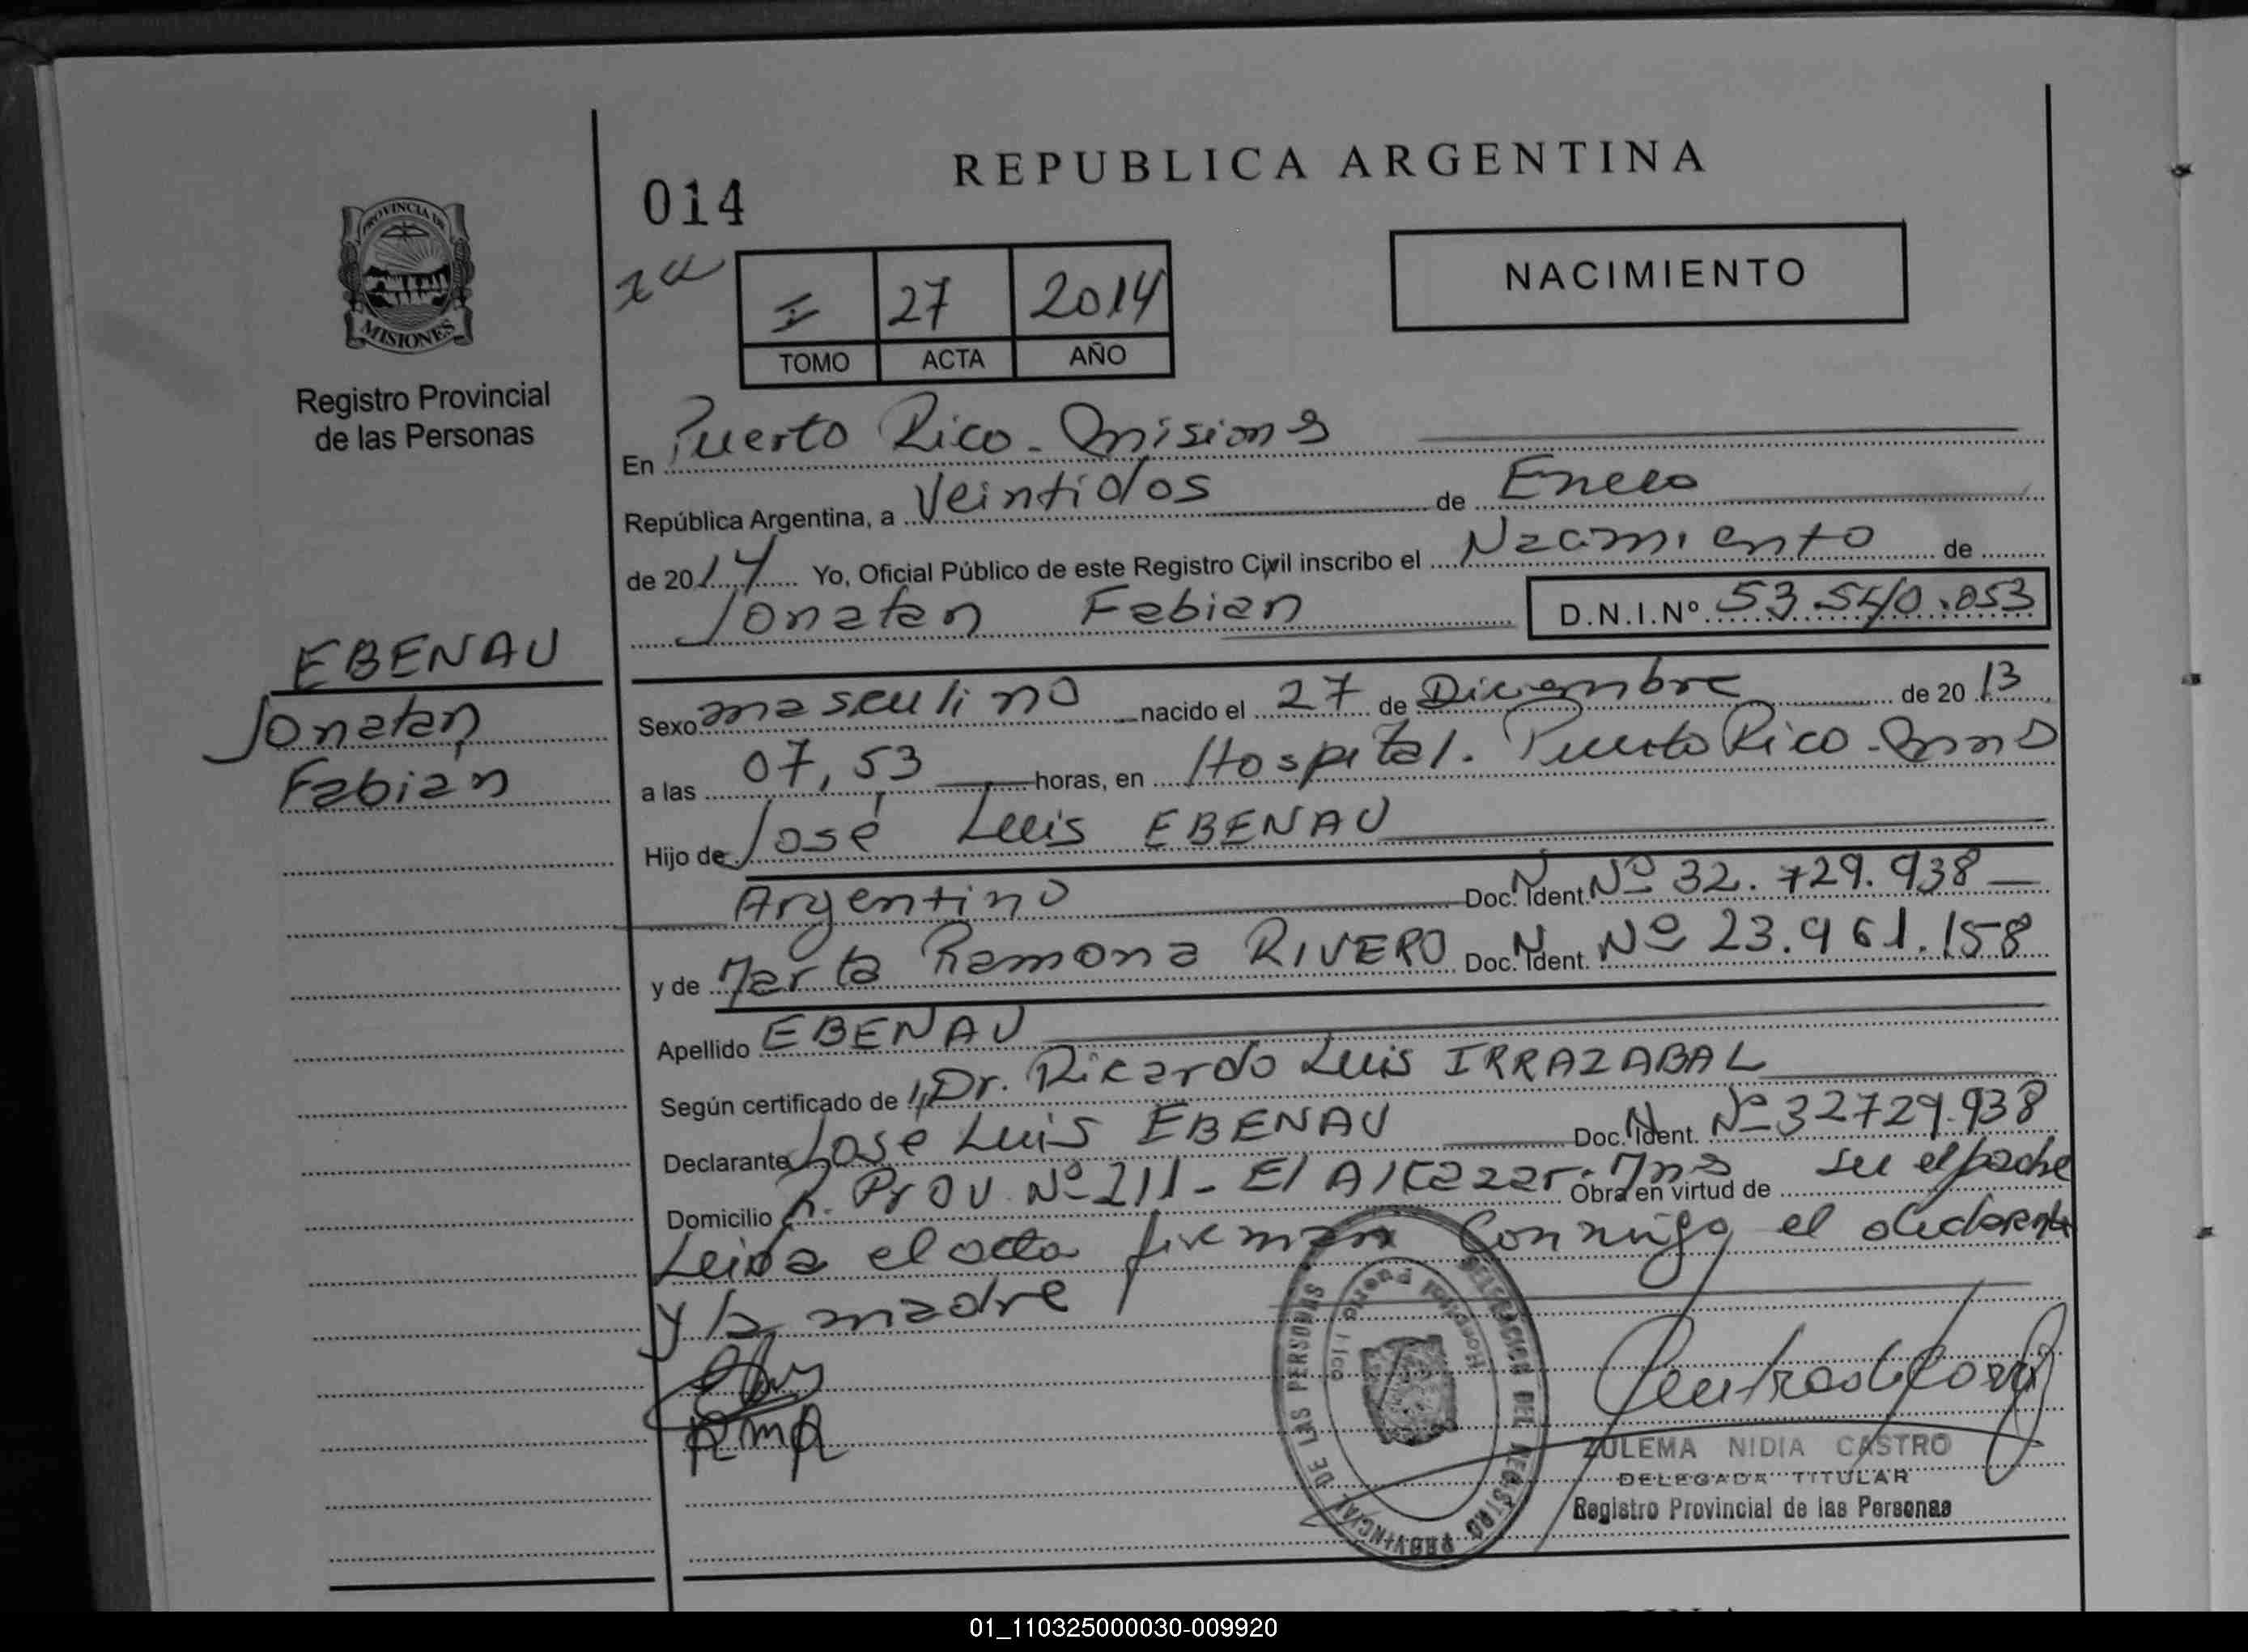 REPUBLICA ARGENTINA
014
PROVINCIA DE
MISIONES
Registro Provincial
de las Personas
I 27 2014
TOMO ACTA AÑO
NACIMIENTO
En Puerto Rico - Misiones
República Argentina, a Veintidos de Enero
de 2014 Yo, Oficial Público de este Registro Civil inscribo el Nacimiento de
Jonatan Fabian D.N.I.Nº 53.540.053
EBENAU
Jonatan
Fabian
Sexo masculino nacido el 27 de Diciembre de 2013
a las 07,53 horas, en Hospital. Puerto Rico - Mnes
Hijo de José Luis EBENAU
Argentino Doc. N. Ident. Nº 32.729.938
y de Marta Ramona RIVERO Doc. N. Ident. Nº 23.961.158
Apellido EBENAU
Según certificado de Dr. Ricardo Luis IRRAZABAL
Declarante José Luis EBENAU Doc. N. Ident. Nº 32729.938
Domicilio R. Prov. Nº 211 - El Alcazar - Mns Obra en virtud de ser el padre
Leida el acta firman conmigo el declarante
y la madre
RMR
DELEGACION DEL REGISTRO PROVINCIAL DE LAS PERSONAS
Hospital Puerto Rico
ZULEMA NIDIA CASTRO
DELEGADA TITULAR
Registro Provincial de las Personas
01_110325000030-009920